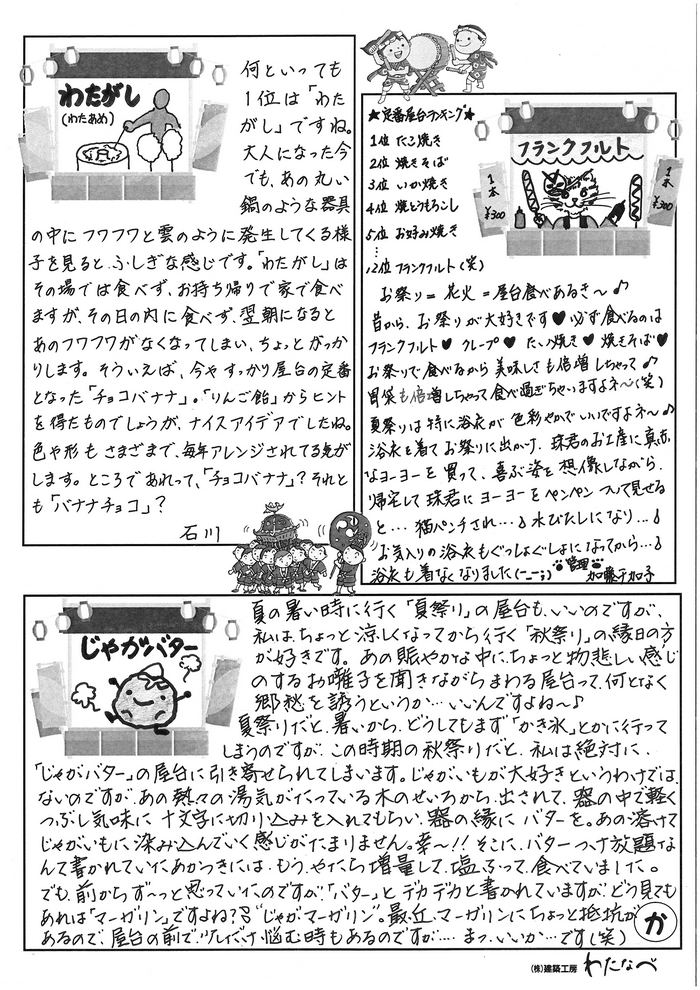 わたがし
(わたあめ)
何といっても
1位は「わた
がし」ですね。
大人になった今
でも、あの丸い
鍋のような器具
の中にフワフワと雲のように発生してくる様
子を見ると、ふしぎな感じです。「わたがし」は
その場では食べず、お持ち帰りで家で食べ
ますが、その日の内に食べず、翌朝になると
あのフワフワがなくなってしまい、ちょっとがっか
りします。そういえば、今やすっかり屋台の定番
となった「チョコバナナ」。「りんご飴」からヒント
を得たものでしょうが、ナイスアイデアでしたね。
色や形もさまざまで、毎年アレンジされてる気が
します。ところであれって、「チョコバナナ」？それと
も「バナナチョコ」？
石川
★定番屋台ランキング★
1位 たこ焼き
2位 焼きそば
3位 いか焼き
4位 焼とうもろこし
5位 お好み焼き
⋮
12位 フランクフルト(笑)
フランクフルト
1本
¥300
1本
¥300
お祭り=花火=屋台食べあるき～♪
昔から、お祭りが大好きです♥必ず食べるのは
フランクフルト♥クレープ♥たこ焼き♥焼きそば♥
お祭りで食べるから美味しさも倍増しちゃって♪
胃袋も倍増しちゃって食べ過ぎちゃいますよネ～(笑)
夏祭りは特に浴衣が色彩やかでいいですよネ～♪
浴衣を着てお祭りに出かけ、珠君のお土産に真っ
なヨーヨーを買って、喜ぶ姿を想像しながら、
帰宅して珠君にヨーヨーをペンペンついて見せる
と…猫パンチされ…♪水びたしになり…♪
お気入りの浴衣もぐっしょぐしょになってから…♪
浴衣も着なくなりました(-_-;)
管理
加藤千加子
じゃがバター
夏の暑い時に行く「夏祭り」の屋台も、いいのですが、
私は、ちょっと涼しくなってから行く「秋祭り」の縁日の方
が好きです。あの賑やかな中に、ちょっと物悲しい感じ
のするお囃子を聞きながらまわる屋台って、何となく
郷愁を誘うというか…いいんですよね～♪
夏祭りだと、暑いから、どうしてもまず「かき氷」とかに行って
しまうのですが、この時期の秋祭りだと、私は絶対に、
「じゃがバター」の屋台に引き寄せられてしまいます。じゃがいもが大好きというわけでは
ないのですが、あの熱々の湯気がたっている木のせいろから、出されて、器の中で軽く
つぶし気味に十文字に切り込みを入れてもらい、器の縁にバターを。あの溶けて
じゃがいもに染み込んでいく感じがたまりません。幸～!!そこに、バターつけ放題な
んて書かれていたあかつきには、もう、やたら増量して、塩ふって、食べていました。
でも、前からず～っと思っていたのですが、「バター」とデカデカと書かれていますが、どう見ても
あれは「マーガリン」ですよね？"じゃがマーガリン"。最近、マーガリンにちょっと抵抗が
あるので、屋台の前で、少しだけ悩む時もあるのですが…まっ、いいか…です(笑)
か
(株)建築工房 わたなべ